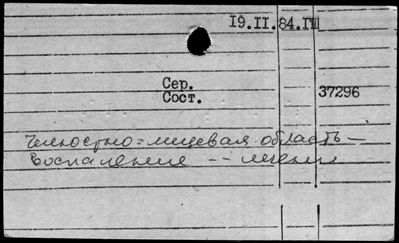 19.II.84.ГЦ
Сер.
Сост.
37296
Челюстно=лицевая область –
Воспаление -- лечени